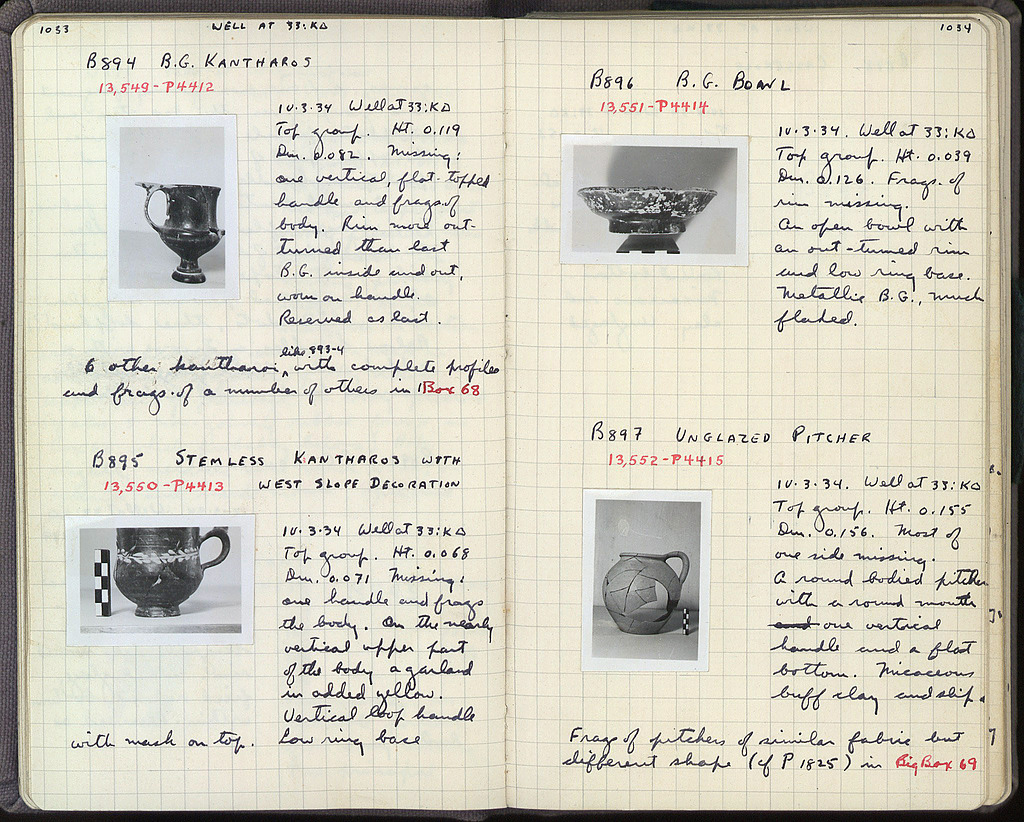 1033
WELL AT 33:ΚΔ
B894 B.G. KANTHAROS
13,549-P4412
10.3.34 Well at 33:ΚΔ
Top group. Ht. 0.119
Dm. 0.082. Missing:
one vertical, flat-topped
handle and frags. of
body. Rim more out-
turned than last
B.G. inside and out,
worn on handle.
Reserved as last.
like 893-4
6 other kantharoi ^ with complete profiles
and frags. of a number of others in Box 68
B895 STEMLESS KANTHAROS WITH
13,550-P4413 WEST SLOPE DECORATION
10.3.34 Well at 33:ΚΔ
Top group. Ht. 0.068
Dm. 0.071 Missing:
one handle and frags
the body. On the nearly
vertical upper part
of the body a garland
in added yellow.
Vertical loop handle
with mask on top. Low ring base
1034
B896 B.G. BOWL
13,551-P4414
10.3.34. Well at 33:ΚΔ
Top group. Ht. 0.039
Dm. 0.126. Frags. of
rim missing.
An open bowl with
an out-turned rim
and low ring base.
Metallic B.G., much
flaked.
B897 UNGLAZED PITCHER
13,552-P4415
10.3.34. Well at 33:ΚΔ
Top group. Ht. 0.155
Dm. 0.156. Most of
one side missing.
A round bodied pitcher
with a round mouth
and one vertical
handle and a flat
bottom. Micaceous
buff clay and slip.
Frags of pitchers of similar fabric but
different shape (cf P 1825) in Big Box 69